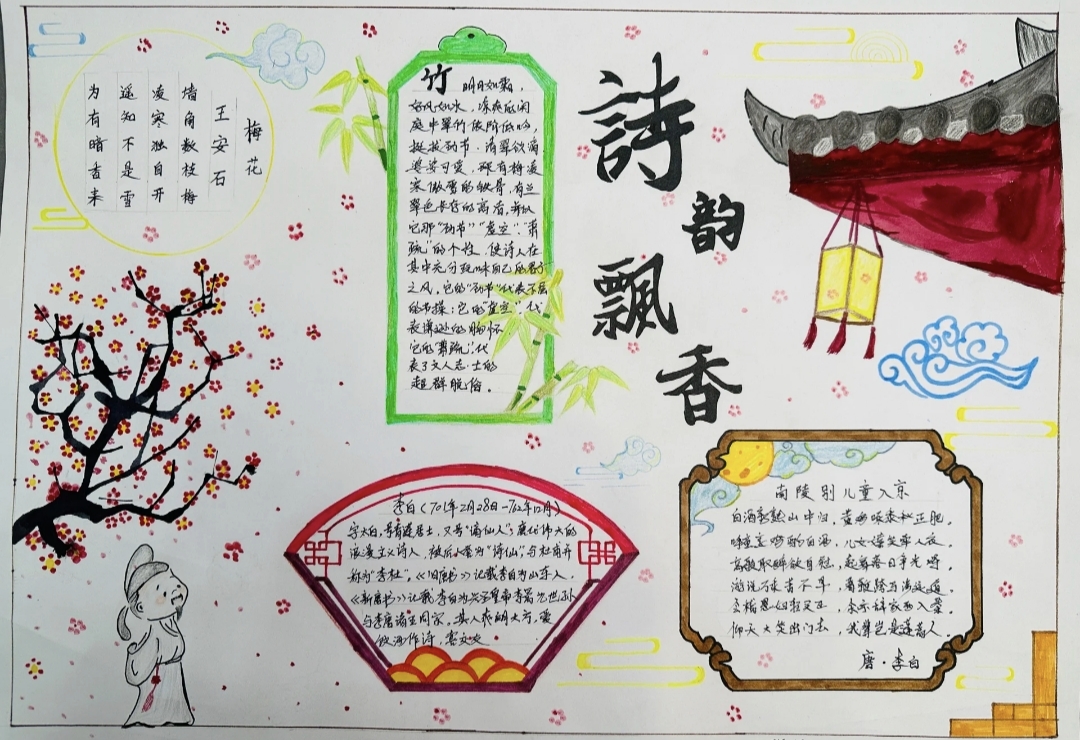 詩韵飘香
梅花
王安石
墙角数枝梅
凌寒独自开
遥知不是雪
为有暗香来
竹 明月如霜，
好风如水，凉爽的闲
庭中翠竹依阶低吟，
挺拔劲节，清翠欲滴
婆娑可爱，既有梅凌
寒傲雪的铁骨，有兰
翠色长存的高洁，并以
它那“劲节”“虚空”、“萧
疏”的个性，使诗人在
其中充分玩味自己的君子
之风。它的“劲节”代表不屈
的节操；它的“虚空”，代
表谦逊的胸怀
它的“萧疏”，代
表了文人志士的
超群脱俗。
李白（701年2月28日—762年12月）
字太白，号青莲居士，又号“谪仙人”；唐代伟大的
浪漫主义诗人，被后人誉为“诗仙”，与杜甫并
称为“李杜”，《旧唐书》记载李白为山东人，
《新唐书》记载李白为兴圣皇帝李暠九世孙
与李唐诸王同宗。其人爽朗大方，爱
饮酒作诗，喜交友
南陵别儿童入京
白酒新熟山中归，黄鸡啄黍秋正肥。
呼童烹鸡酌白酒，儿女嬉笑牵人衣。
高歌取醉欲自慰，起舞落日争光辉。
游说万乘苦不早，著鞭跨马涉远道。
会稽愚妇轻买臣，余亦辞家西入秦。
仰天大笑出门去，我辈岂是蓬蒿人。
唐·李白